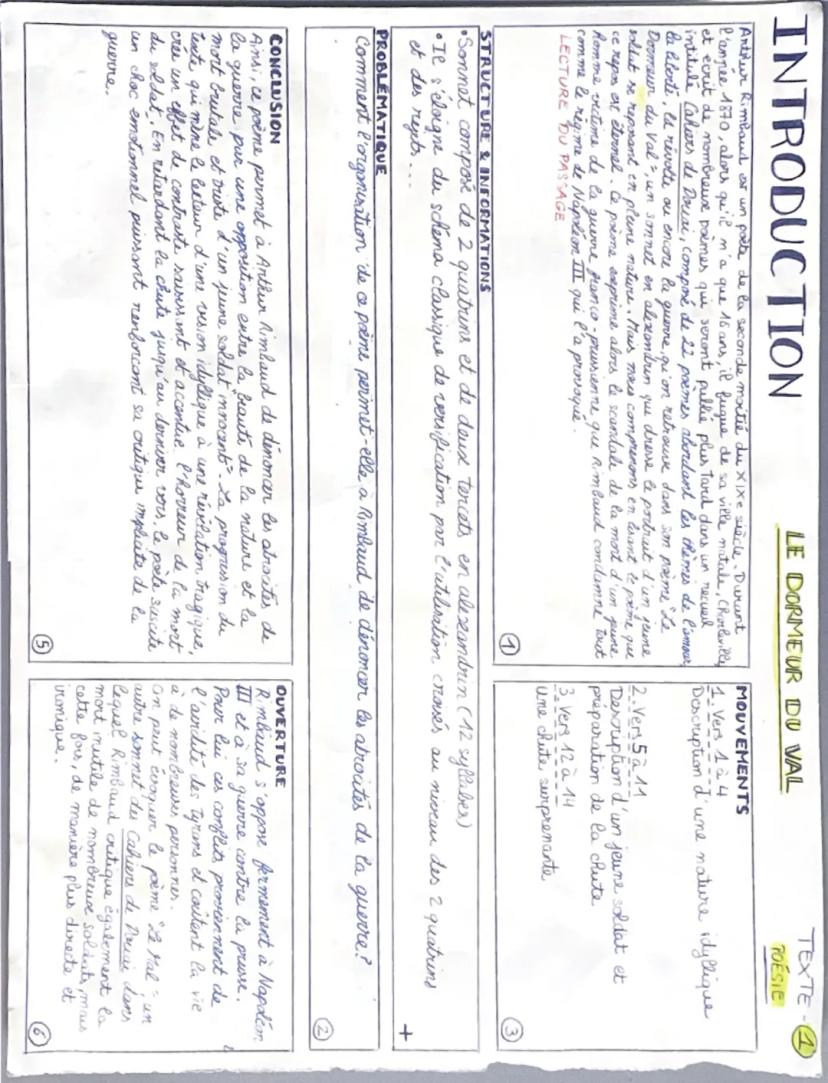 INTRODUCTION
LE DORMEUR DU VAL
TEXTE - 1
POÉSIE
Arthur Rimbaud est un poète de la seconde moitié du XIXe siècle. Durant
l'année 1870, alors qu'il n'a que 16 ans, il fugue de sa ville natale, Charleville,
et écrit de nombreux poèmes qui seront publié plus tard dans un recueil
intitulé Cahiers de Douai, composé de 22 poèmes abordant les thèmes de l'amour,
la liberté, la révolte ou encore la guerre qu'on retrouve dans son poème "Le
Dormeur du Val" un sonnet en alexandrin qui dresse le portrait d'un jeune
soldat se reposant en pleine nature. Mais nous comprenons en lisant le poème que
ce repos est éternel. Ce poème exprime alors le scandale de la mort d'un jeune
homme victime de la guerre franco-prussienne que Rimbaud condamne tout
comme le régime de Napoléon III qui l'a provoqué.
LECTURE DU PASSAGE
1
MOUVEMENTS
1. Vers 1 à 4
Description d'une nature idyllique
2. Vers 5 à 11
Description d'un jeune soldat et
préparation de la chute
3. Vers 12 à 14
Une chute surprenante
3
STRUCTURE & INFORMATIONS
• Sonnet composé de 2 quatrains et de deux tercets en alexandrin (12 syllabes)
• Il s'éloigne du schéma classique de versification par l'utilisation croisés au niveau des 2 quatrains
et des rejets...
+
PROBLÉMATIQUE
Comment l'organisation de ce poème permet-elle à Rimbaud de dénoncer les atrocités de la guerre?
2
CONCLUSION
Ainsi, ce poème permet à Arthur Rimbaud de dénoncer les atrocités de
la guerre par une opposition entre la beauté de la nature et la
mort brutale et triste d'un jeune soldat innocent. La progression du
texte qui mène le lecteur d'une vision idyllique à une révélation tragique,
crée un effet de contraste saisissant et accentue l'horreur de la mort
du soldat. En retardant la chute jusqu'au dernier vers, le poète suscite
un choc émotionnel puissant renforçant sa critique implicite de la
guerre.
5
OUVERTURE
Rimbaud s'oppose fermement à Napoléon
III et à sa guerre contre la prusse.
Pour lui ces conflits proviennent de
l'avidité des tyrans et coûtent la vie
à de nombreuses personnes.
On peut évoquer le poème "Le Mal", un
autre sonnet des Cahiers de Douai dans
lequel Rimbaud critique également la
mort inutile de nombreux soldats, mais
cette fois, de manière plus directe et
ironique.
6